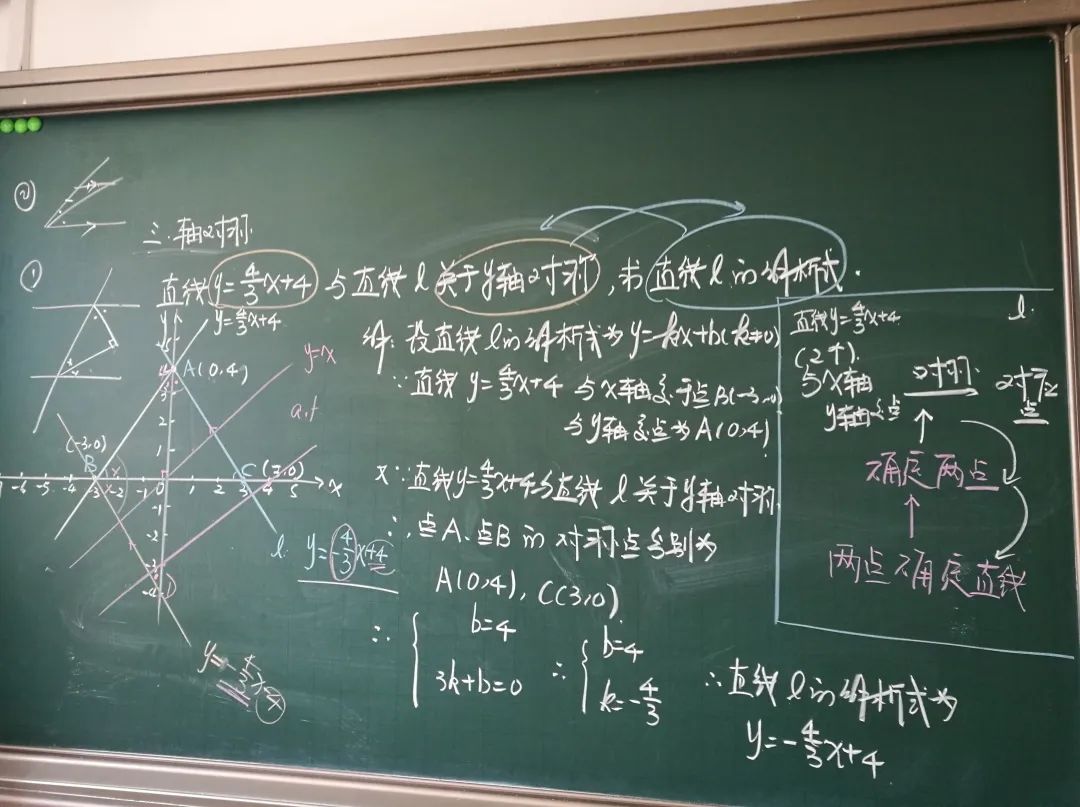 ②
三.轴对称.
①
直线y=4/3x+4与直线l关于y轴对称,求直线l的解析式.
y
y=4/3x+4
A(0,4)
y=x
(-3,0)
B
C(3,0)
x
-5 -4 -3 -2 -1 0 1 2 3 4 5
l
y=-4/3x+4
D
解:设直线l的解析式为y=kx+b(k≠0)
∵直线y=4/3x+4与x轴交于点B(-3,0)
与y轴交点为A(0,4)
又∵直线y=4/3x+4与直线l关于y轴对称
∴点A、点B的对称点分别为
A(0,4),C(3,0)
∴{b=4
3k+b=0
∴{b=4
k=-4/3
∴直线l的解析式为
y=-4/3x+4
直线y=4/3x+4 l
与x轴 对称 对应
y轴交点 点
确定两点
两点确定直线